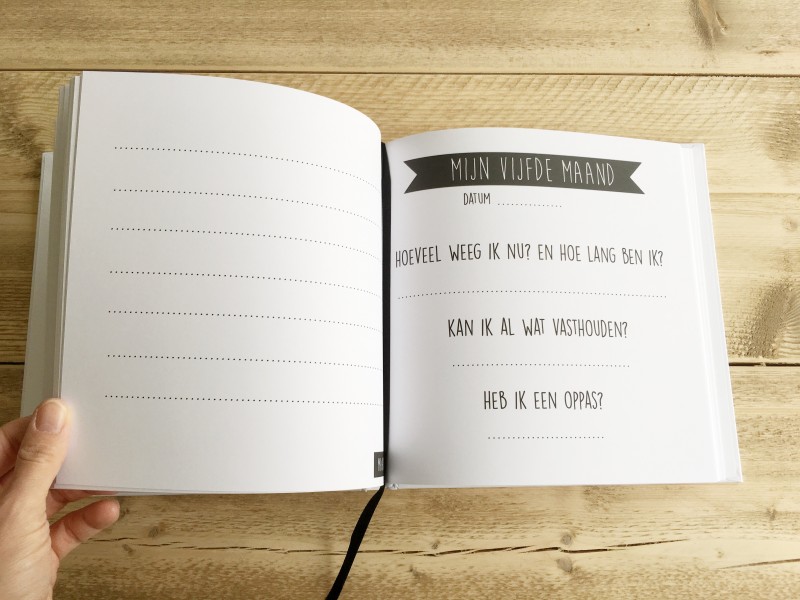 MIJN VIJFDE MAAND
DATUM ...............
HOEVEEL WEEG IK NU? EN HOE LANG BEN IK?
KAN IK AL WAT VASTHOUDEN?
HEB IK EEN OPPAS?